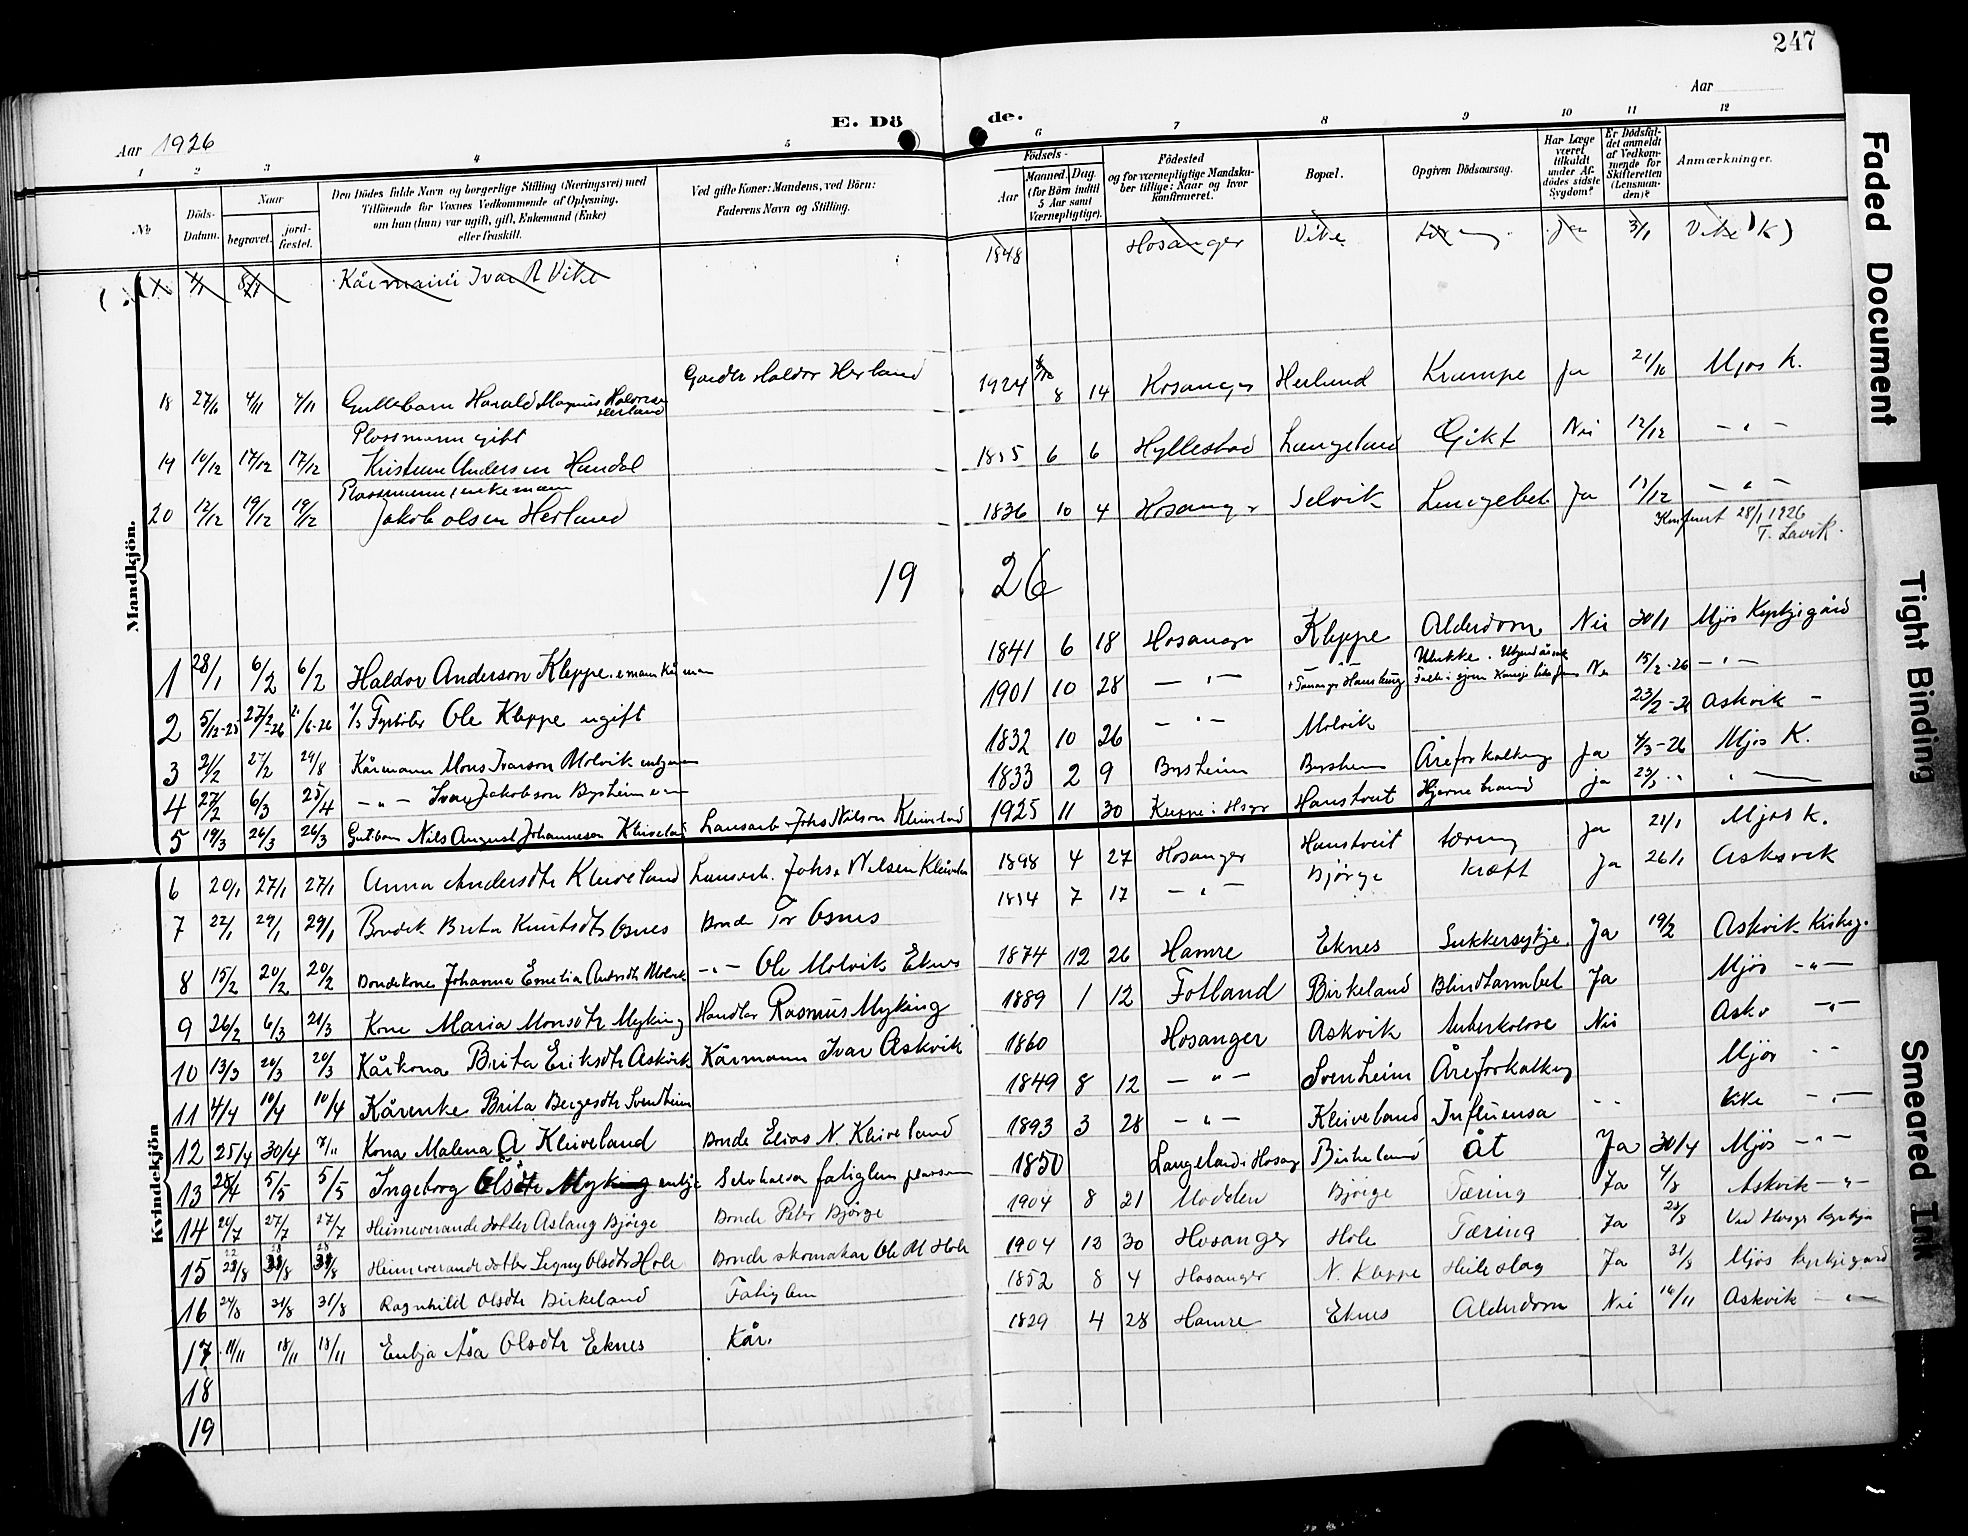 247
Aar 1926
E. Dö
de.
Aar
1 2 3 4 5 6 7 8 9 10 11 12
No
Döds-Datum.
Naar
begravet.
jord-fæstet.
Den Dödes fulde Navn og borgerlige Stilling (Næringsvei) med
Tilföiende for Voxnes Vedkommende af Oplysning,
om han (hun) var ugift, gift, Enkemand (Enke)
eller fraskilt.
Ved gifte Koner: Mandens, ved Börn:
Faderens Navn og Stilling.
Födsels-
Aar
Maaned. Dag.
(for Börn indtil
5 Aar samt
Værnepligtige).
Födested
og for værnepligtige Mandska-
ber tillige: Naar og hvor
konfirmeret.
Bopæl.
Opgiven Dödsaarsag.
Har Læge
været
tilkaldt
under Af-
dödes sidste
Sygdom?
Er Dödsfal-
det anmeldt
af Vedkom-
mende for
Skifteretten
(Lensman-
den)?
Anmærkninger.
Mandkjön.
Kårmann Ivar R Vike 1848 Hosanger Vike Ja 3/1 Vike K)
Gardbr Haldor Herland
18 4/11 4/11 Guttebarn Harald Magnus Haldorsen Herland 1924 8 14 Hosanger Herland Krampe Ja 21/10 Mjös K.
Plassmann gift
19 10/12 17/12 17/12 Kristian Andersen Handal 1855 6 6 Hyllestad Langeland Gikt Nei 12/12 - " -
Plassmann, enkemann
20 12/12 19/12 19/12 Jakob Olsen Herland 1836 10 4 Hosanger Selvik Lungebet Ja 13/12 - " -
28/1 1926
T. Lavik.
19 26
1 28/1 6/2 6/2 Haldor Anderson Kleppe. e mann Kårman 1841 6 18 Hosanger Kleppe Alderdom Nei 30/1 Mjös Kyrkjegård
2 5/12-25 27/2-26 Ole Kleppe ugift 1901 10 28 - " - Ulukke. Nei 15/2-26 - " -
3 21/2 27/2 29/8 Kårmann Mons Ivarson Molvik 1832 10 26 - " - Molvik 23/2-26 Askvik -
4 27/2 6/3 25/4 - " - Ivar Jakobson Bysheim 1833 2 9 Bysheim Bysheim Åreforkalkning Ja 4/3-26 Mjös K.
5 19/3 26/3 26/3 Gutbarn Nils August Johanneson Kleiveland Lausarb. Johs Nilson Kleiveland 1925 11 30 Kleppe i Hsgr Haustveit Hjernebrand Ja 23/3
Kvindekjön
6 20/1 27/1 27/1 Anna Andersdtr Kleiveland Lausarb. Johs. Nilsen Kleiveland 1898 4 27 Hosanger Haustveit tæring Ja 21/1 Mjös K.
7 22/1 29/1 29/1 Brita Knutsdtr Osnes Bonde Tor Osnes 1854 7 17 - " - Bjørge kræft Ja 26/1 Askvik
8 15/2 20/2 20/2 Bondekone Johanna Emelia Andrsdtr Molvik - " - Ole Molvik Eknes 1874 12 26 Hamre Eknes Sukkersykje. Ja 19/2 Askvik
9 26/2 6/3 21/3 Kone Maria Monsdtr Myking Handlar Rasmus Myking 1889 1 12 Fotland Birkeland Blindtarmbet Ja Mjös - " -
10 13/3 20/3 20/3 Kårkona Brita Eriksdtr Askvik Kårmann Ivar Askvik 1860 Hosanger Askvik tuberkolose Nei Askv - " -
11 4/4 10/4 10/4 Kårenke Brita Børgesdtr Svenheim 1849 8 12 - " - Svenheim Åreforkalkng Mjös - " -
12 25/4 30/4 7/11 Kona Malena A Kleiveland Bonde Elias N. Kleiveland 1893 3 28 - " - Kleiveland Influensa - - Vike - " -
13 28/4 5/5 5/5 Ingeborg Olsdtr Myking enkje fatiglem 1850 Langeland i Hosang Birkeland Åt Ja 30/4 Mjös - " -
14 20/7 27/7 27/7 Heimeverande dotter Aslaug Bjørge Bonde Peter Bjørge 1904 8 21 Modalen Bjørge Tæring Ja 4/8 Askvik - " -
15 22/8 28/8 28/8 Heimeverande dotter Signy Olsdtr Hole Bonde skomakar Ole M Hole 1904 12 30 Hosanger Hole Tæring Ja 23/8 Ved Hosgr kyrkja
16 24/8 31/8 31/8 Ragnhild Olsdtr Birkeland Fatiglem 1852 8 4 Hosanger N. Kleppe Heileslag Ja 31/8 Mjös kyrkjegard
17 11/11 18/11 18/11 Enkja Åsa Olsdtr Eknes Kår. 1829 4 28 Hamre Eknes Alderdom Nei 16/11 Askvik - " -
18
19
Faded Document
Tight Binding
Smeared Ink